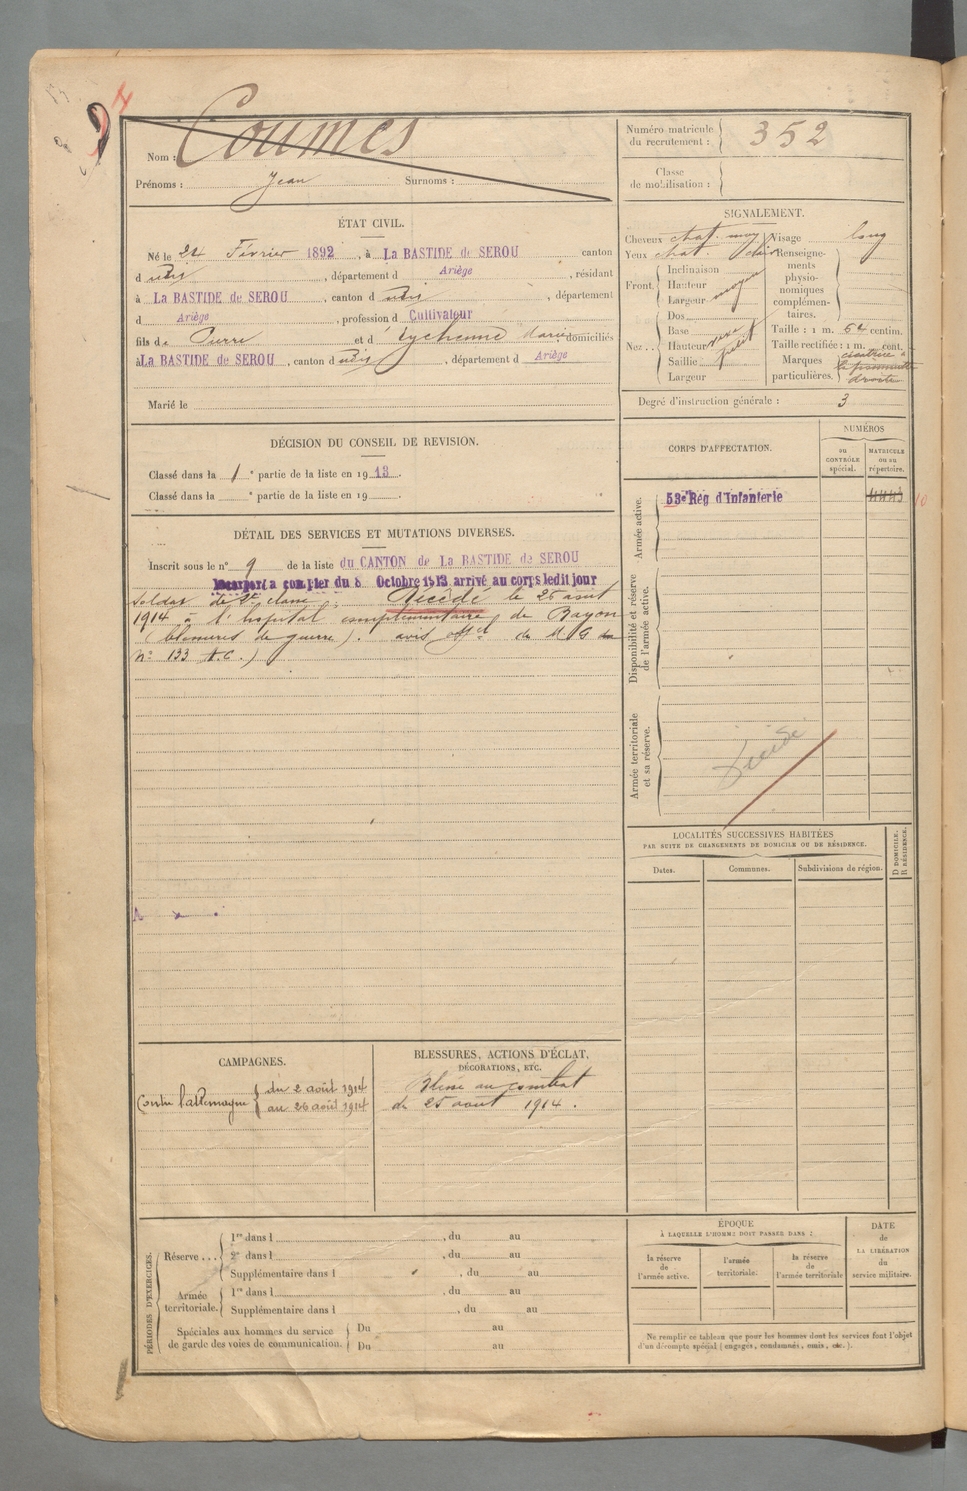 Nom : Coumes
Prénoms : Jean Surnoms :
Numéro matricule du recrutement : 352
Classe de mobilisation :
ÉTAT CIVIL.
Né le 24 Février 1892, à La BASTIDE de SEROU canton
d udit, département d Ariège, résidant
à La BASTIDE de SEROU, canton d udit, département
d Ariège, profession d Cultivateur
fils de Pierre et d Eychenne Marie, domiciliés
à La BASTIDE de SEROU, canton d udit, département d Ariège
Marié le
SIGNALEMENT.
Cheveux chat. moy Visage long
Yeux chat. clair
Renseignements physionomiques complémentaires.
Front. Inclinaison
Hauteur
Largeur moyen
Nez. Dos
Base
Hauteur
Saillie petit
Largeur
Taille : 1 m. 64 centim.
Taille rectifiée : 1 m. cent.
Marques particulières. cicatrice à
la pommette
droite
Degré d'instruction générale : 3
DÉCISION DU CONSEIL DE REVISION.
Classé dans la 1e partie de la liste en 1913.
Classé dans la e partie de la liste en 19 .
DÉTAIL DES SERVICES ET MUTATIONS DIVERSES.
Inscrit sous le n° 9 de la liste du CANTON de La BASTIDE de SEROU
Incorporé a compter du 8 Octobre 1913 arrivé au corps ledit jour
soldat de 2e classe. Décédé le 26 août
1914 à l'hopital complémentaire de Bayon
(blessures de guerre). avis off el du M G
n° 133 A.C.)
CORPS D'AFFECTATION.
NUMÉROS
au CONTRÔLE spécial.
MATRICULE ou au répertoire.
Armée active.
53e Rég d'Infanterie
Disponibilité et réserve de l'armée active.
Armée territoriale et sa réserve.
Décédé
LOCALITÉS SUCCESSIVES HABITÉES
PAR SUITE DE CHANGEMENTS DE DOMICILE OU DE RÉSIDENCE.
Dates. Communes. Subdivisions de région. D DOMICILE. R RÉSIDENCE.
CAMPAGNES.
Contre l'allemagne du 2 août 1914
au 26 août 1914
BLESSURES, ACTIONS D'ÉCLAT,
DÉCORATIONS, ETC.
Blessé au combat
du 25 aout 1914.
PÉRIODES D'EXERCICES.
Réserve... 1re dans l , du au
2e dans l , du au
Supplémentaire dans l , du au
Armée territoriale. 1re dans l , du au
Supplémentaire dans l , du au
Spéciales aux hommes du service
de garde des voies de communication. Du au
Du au
ÉPOQUE
À LAQUELLE L'HOMME DOIT PASSER DANS :
la réserve de l'armée active.
l'armée territoriale.
la réserve de l'armée territoriale
DATE de LA LIBÉRATION du service militaire.
Ne remplir ce tableau que pour les hommes dont les services font l'objet
d'un décompte spécial (engagés, condamnés, omis, etc.).